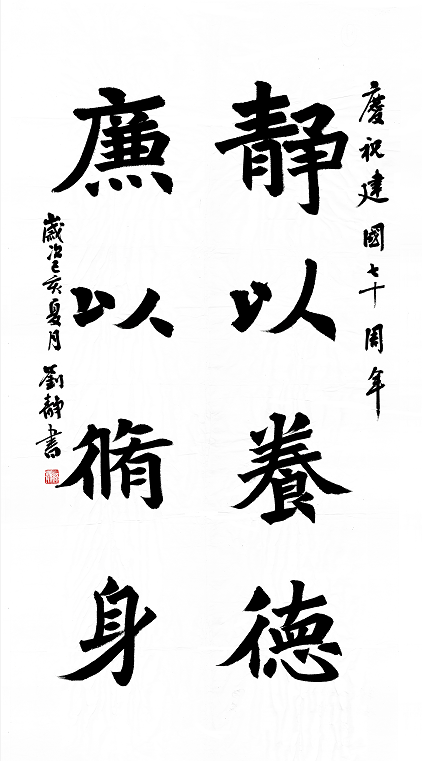 慶祝建國七十周年
靜以養德
廉以脩身
歲次己亥夏月 劉靜書